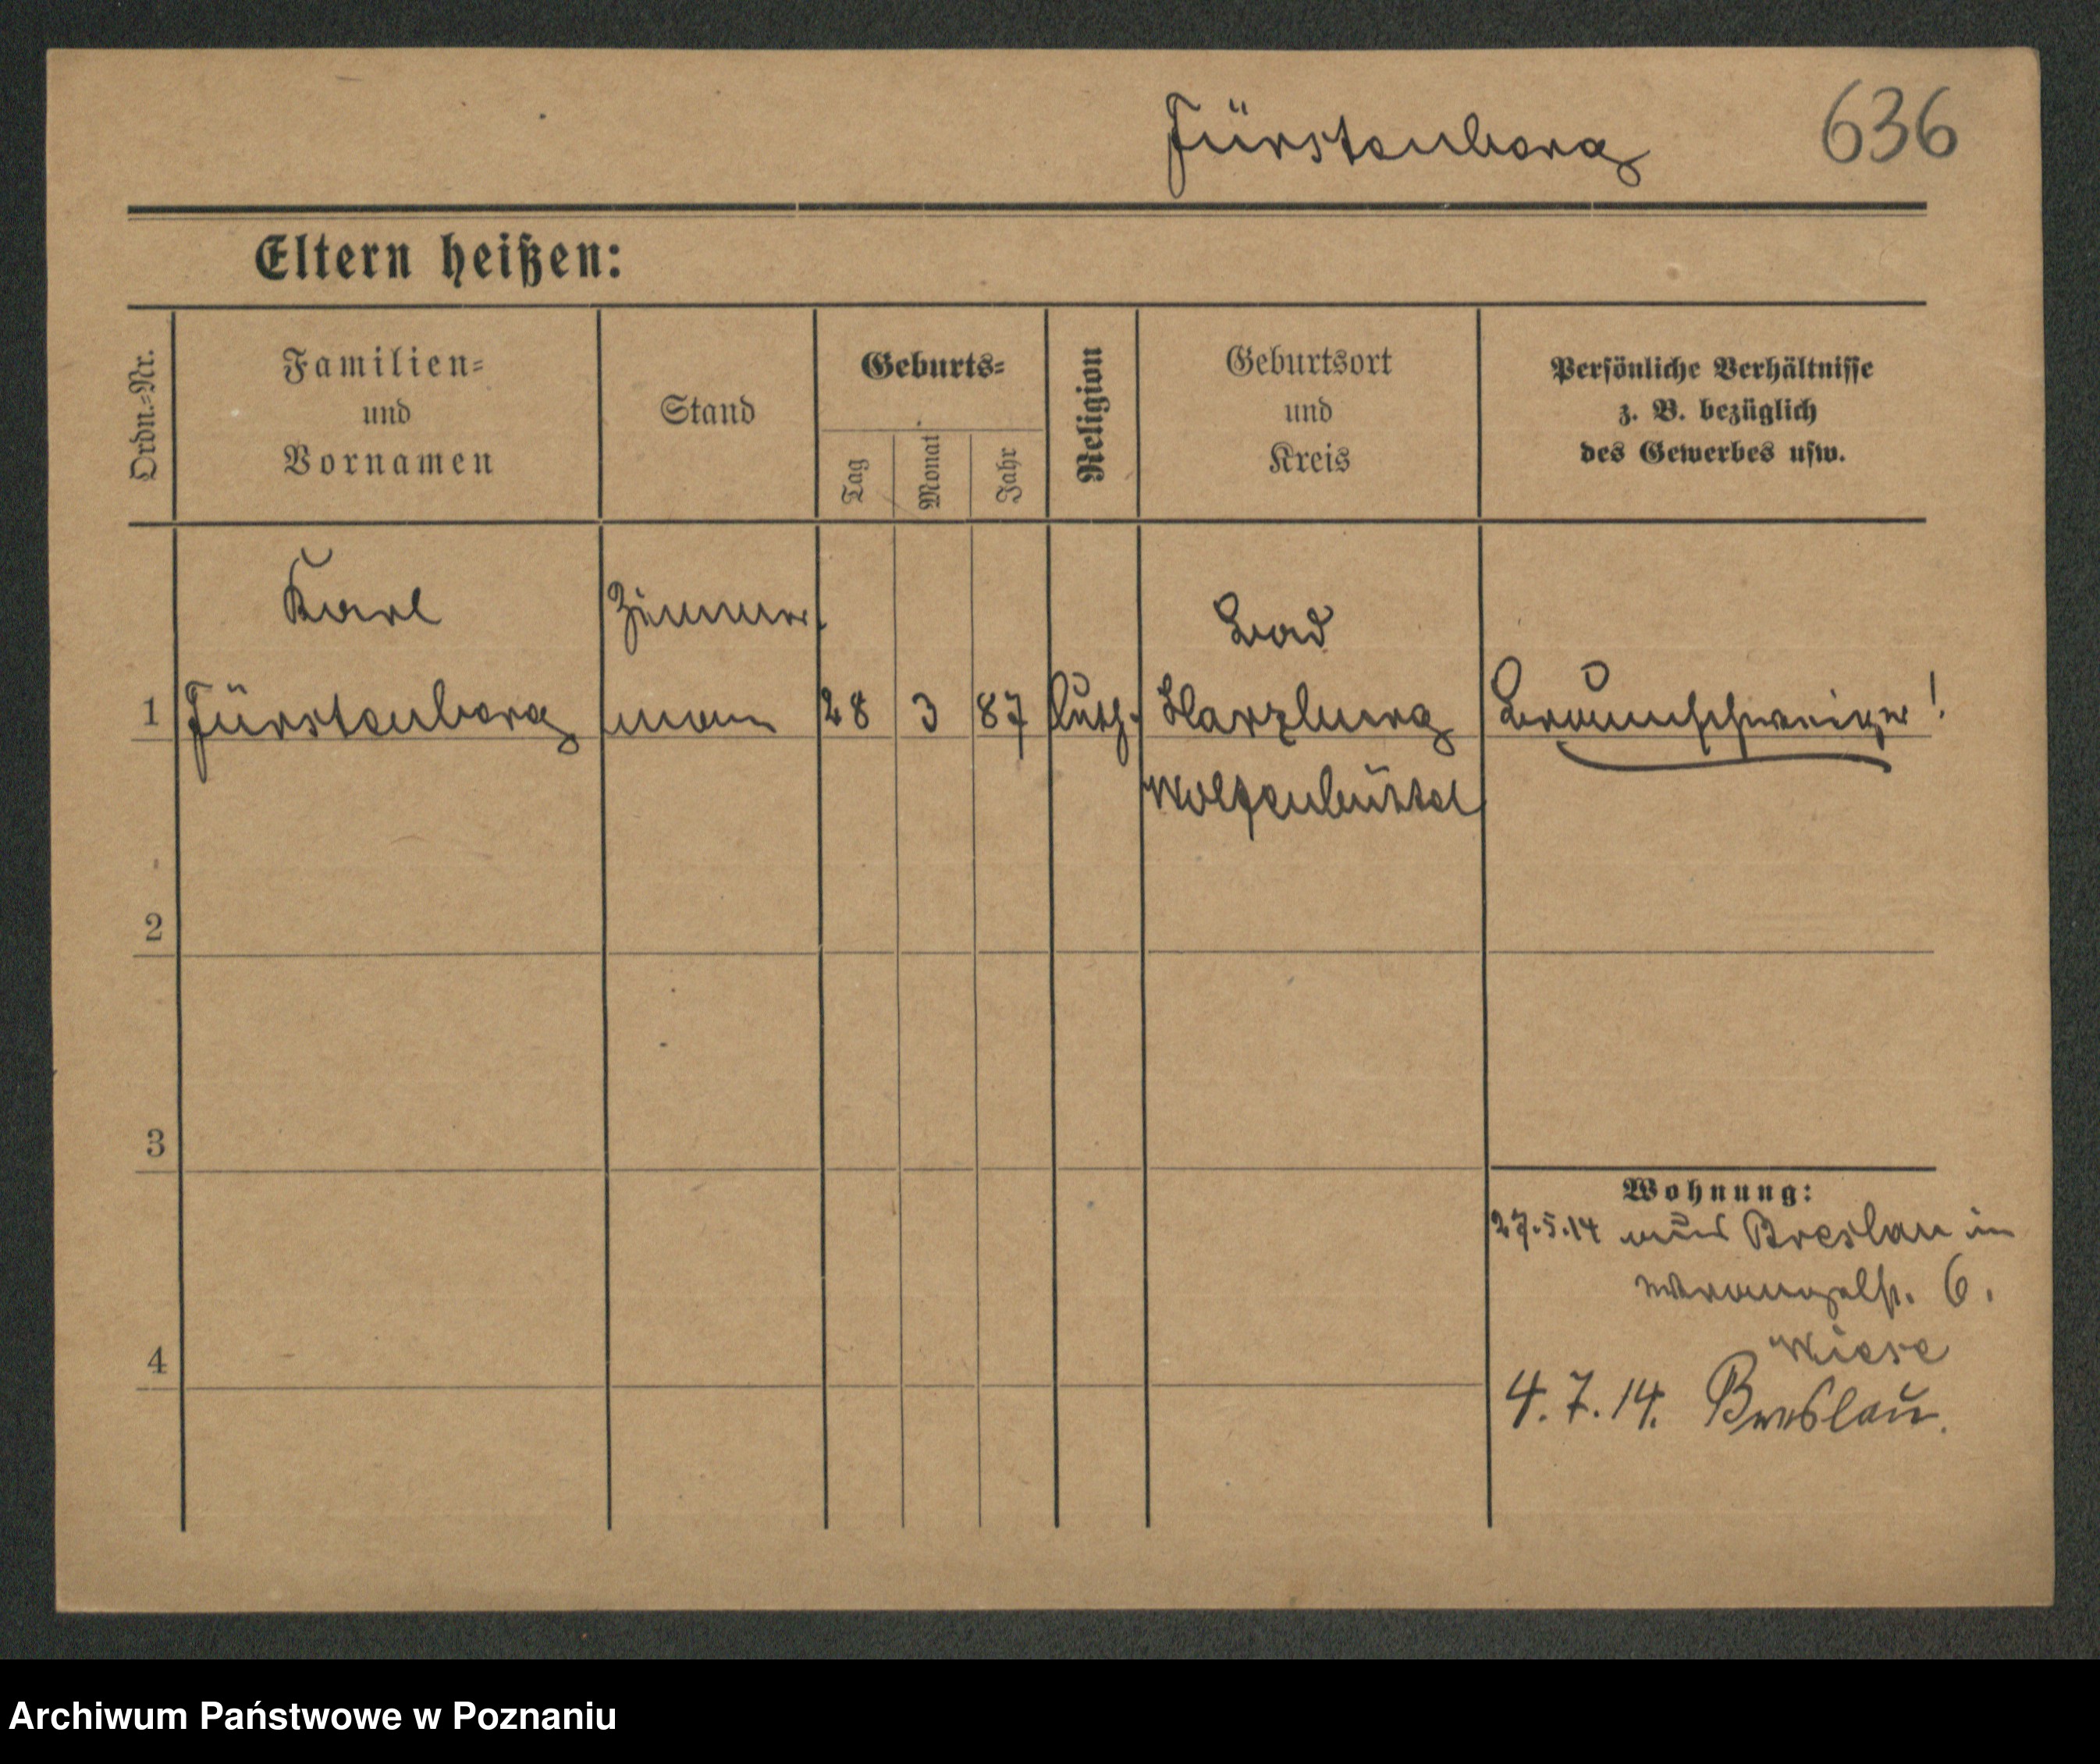 Fürstenberg 636
Eltern heißen:
Ordn.-Nr.
Familien-
und
Vornamen
Stand
Geburts-
Tag
Monat
Jahr
Religion
Geburtsort
und
Kreis
Persönliche Verhältnisse
z. B. bezüglich
des Gewerbes usw.
Karl Zimmer- Bad
1 Fürstenberg mann 28 3 87 luth. Harzburg Braunschweiger!
Wolfenbüttel
2
3
Wohnung:
27.5.14 aus Breslau in
Wrangelst. 6.
Wiese
4
4.7.14. Breslau.
Archiwum Państwowe w Poznaniu